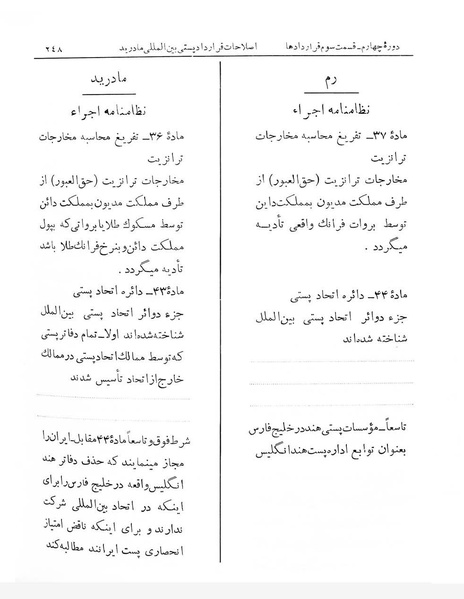 دورهٔ چهارم - قسمت سوم قراردادها
اصلاحات قرارداد پستی بین‌المللی مادرید
۲٤۸
رم
نظامنامه اجراء
مادهٔ ۳۷ـ تفریغ محاسبه مخارجات
ترانزیت
مخارجات ترانزیت (حق‌العبور) از
طرف مملکت مدیون بمملکت داین
توسط بروات فرانک واقعی تأدیه
میگردد .
مادهٔ ۴۴ـ دائره اتحاد پستی
جزء دوائر اتحاد پستی بین‌الملل
شناخته شده‌اند
تاسعاً ـ مؤسسات پستی هند در خلیج فارس
بعنوان توابع اداره پست هند انگلیس
مادرید
نظامنامه اجراء
مادهٔ ۳۶ـ تفریغ محاسبه مخارجات
ترانزیت
مخارجات ترانزیت (حق‌العبور) از
طرف مملکت مدیون بمملکت دائن
توسط مسکوک طلا یا برواتی که بپول
مملکت دائن و بنرخ فرانک طلا باشد
تأدیه میگردد .
مادهٔ ۴۳ـ دائره اتحاد پستی
جزء دوائر اتحاد پستی بین‌الملل
شناخته شده‌اند اولا ـ تمام دفاتر پستی
که توسط ممالک اتحاد پستی در ممالک
خارج از اتحاد تأسیس شدند
شرط فوق و تاسعاً مادهٔ ۴۴ مقابل، ایران را
مجاز مینمایند که حذف دفاتر هند
انگلیس واقعه در خلیج فارس را برای
اینکه در اتحاد بین‌المللی شرکت
ندارند و برای اینکه ناقض امتیاز
انحصاری پست ایرانند مطالبه کند